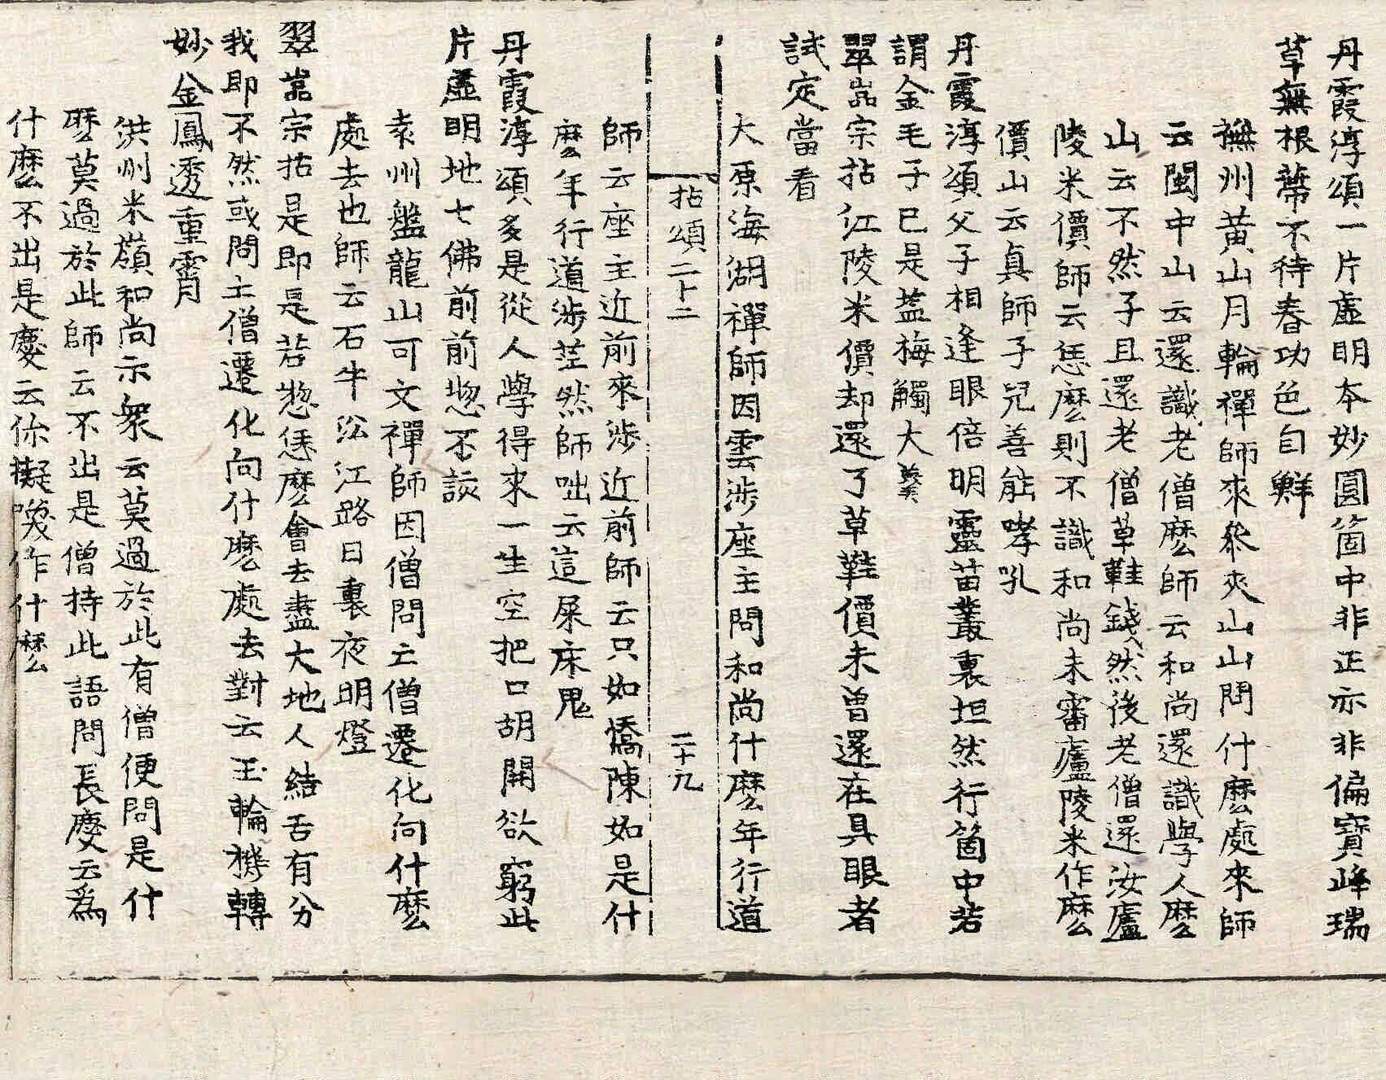 丹霞淳頌一片虛明本妙圓箇中非正亦非偏寶峰瑞
草無根蔕不待春功色自鮮
撫州黄山月輪禪師來叅夾山問什麽處來師
云閩中山云還識老僧麽師云和尚還識學人麽
山云不然子且還老僧草鞋錢然後老僧還汝廬
陵米價師云恁麽則不識和尚未審廬陵米作麽
價山云真師子兒善能哮吼
丹霞淳頌父子相逢眼倍明靈苗叢裏坦然行箇中若
謂金毛子已是盐梅觸大羮
翠嵓宗拈江陵米價却還了草鞋價未曾還在具眼者
試定當看
大原海湖禪師因雲涉座主問和尚什麽年行道
拈頌二十二　二十九
師云座主近前來涉近前師云只如憍陳如是什
麽年行道涉茫然師咄云這屎床鬼
丹霞淳頌多是從人學得來一生空把口胡開欲窮此
片虛明地七佛前前惣不該
袁州盤龍山可文禪師因僧問亡僧遷化向什麽
處去也師云石牛㳂江路日裏夜明燈
翠嵓宗拈是即是若惣恁麽會去盡大地人結舌有分
我即不然或問亡僧遷化向什麽處去對云玉輪機轉
妙金鳳透重霄
洪州米嶺和尚示衆云莫過於此有僧便問是什
麽莫過於此師云不出是僧持此語問長慶云爲
什麽不出是慶云你擬喚作什麽